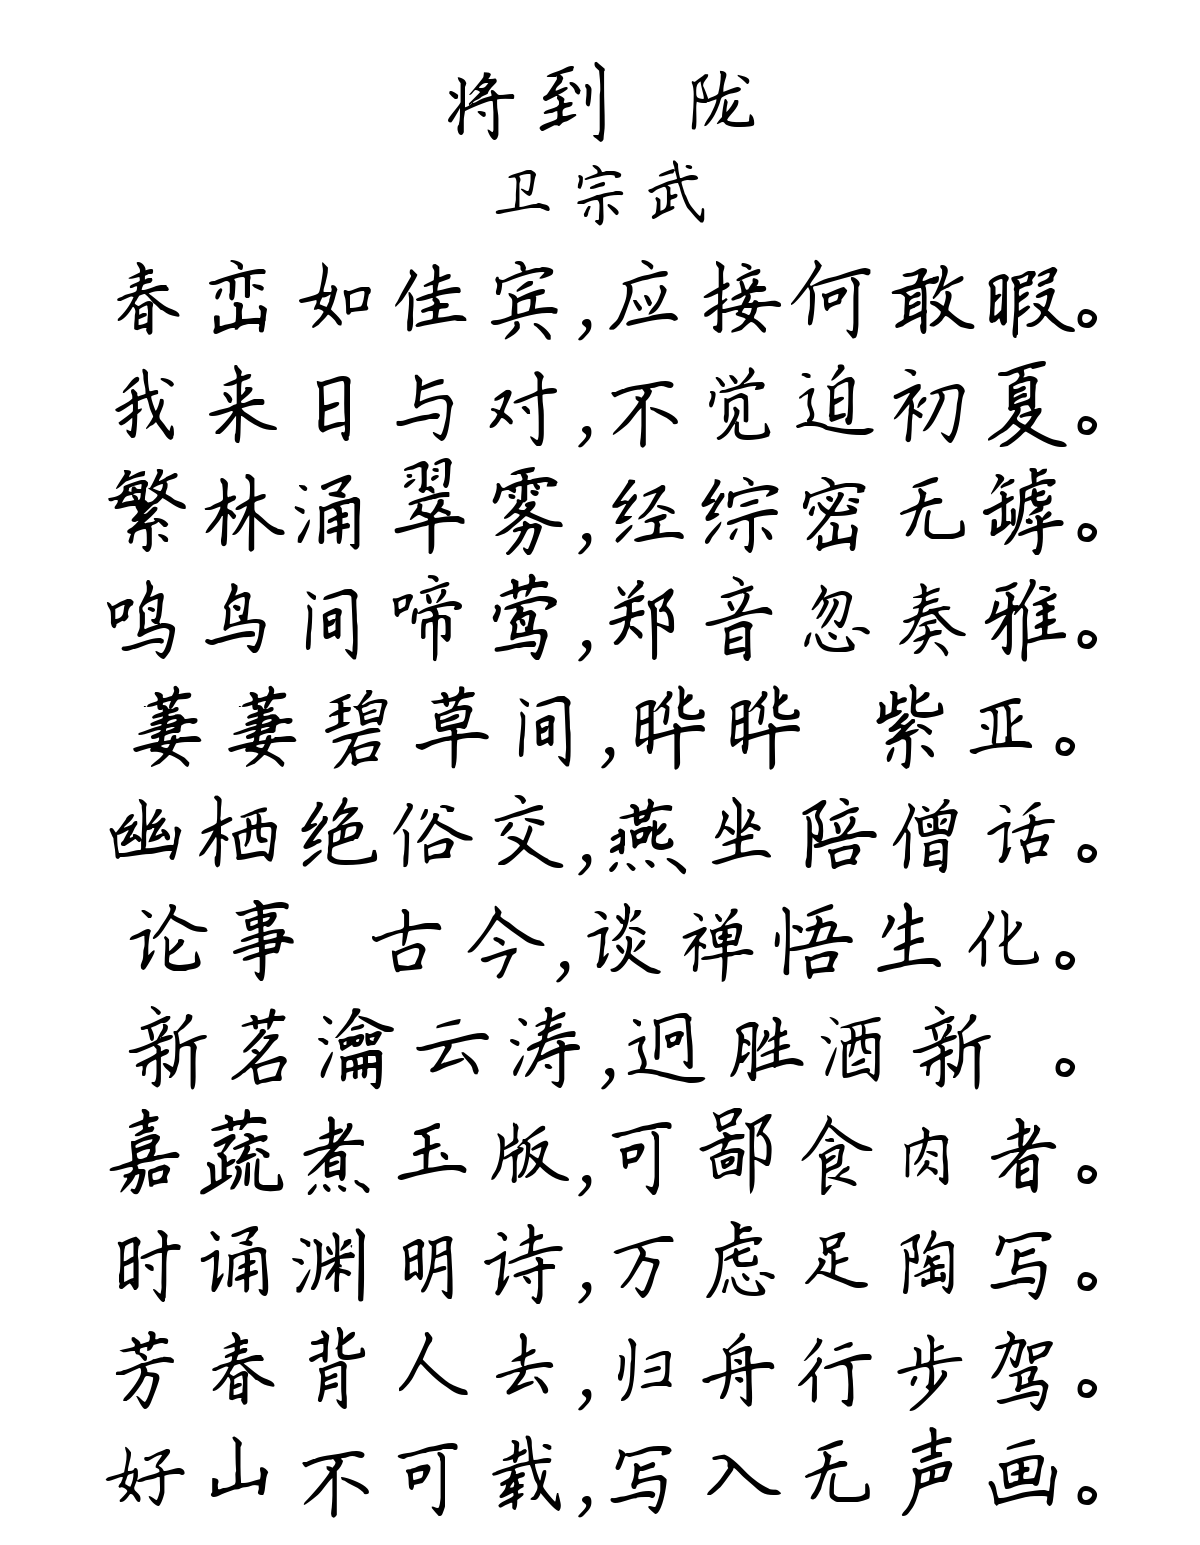 将到 陇
卫宗武
春峦如佳宾,应接何敢暇。
我来日与对,不觉迫初夏。
繁林涌翠雾,经综密无罅。
鸣鸟间啼莺,郑音忽奏雅。
萋萋碧草间,晔晔 紫亚。
幽栖绝俗交,燕坐陪僧话。
论事 古今,谈禅悟生化。
新茗瀹云涛,迥胜酒新 。
嘉蔬煮玉版,可鄙食肉者。
时诵渊明诗,万虑足陶写。
芳春背人去,归舟行步驾。
好山不可载,写入无声画。